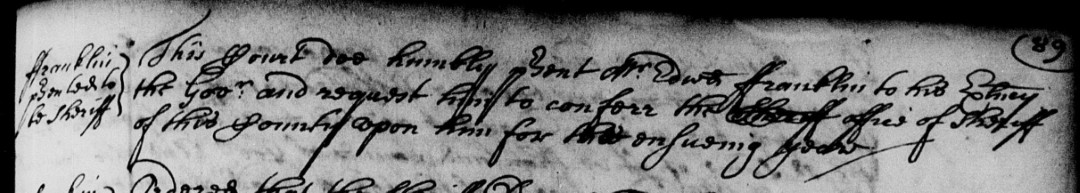 89
ffranklin
psented to
be Sheriff
This Court doe humbly psent Mr. Edwd ffranklin to his Exlncy
the Govr. and request him to conferr the office of Sheriff
of this County upon him for the ensueing yeare
Ordered that the